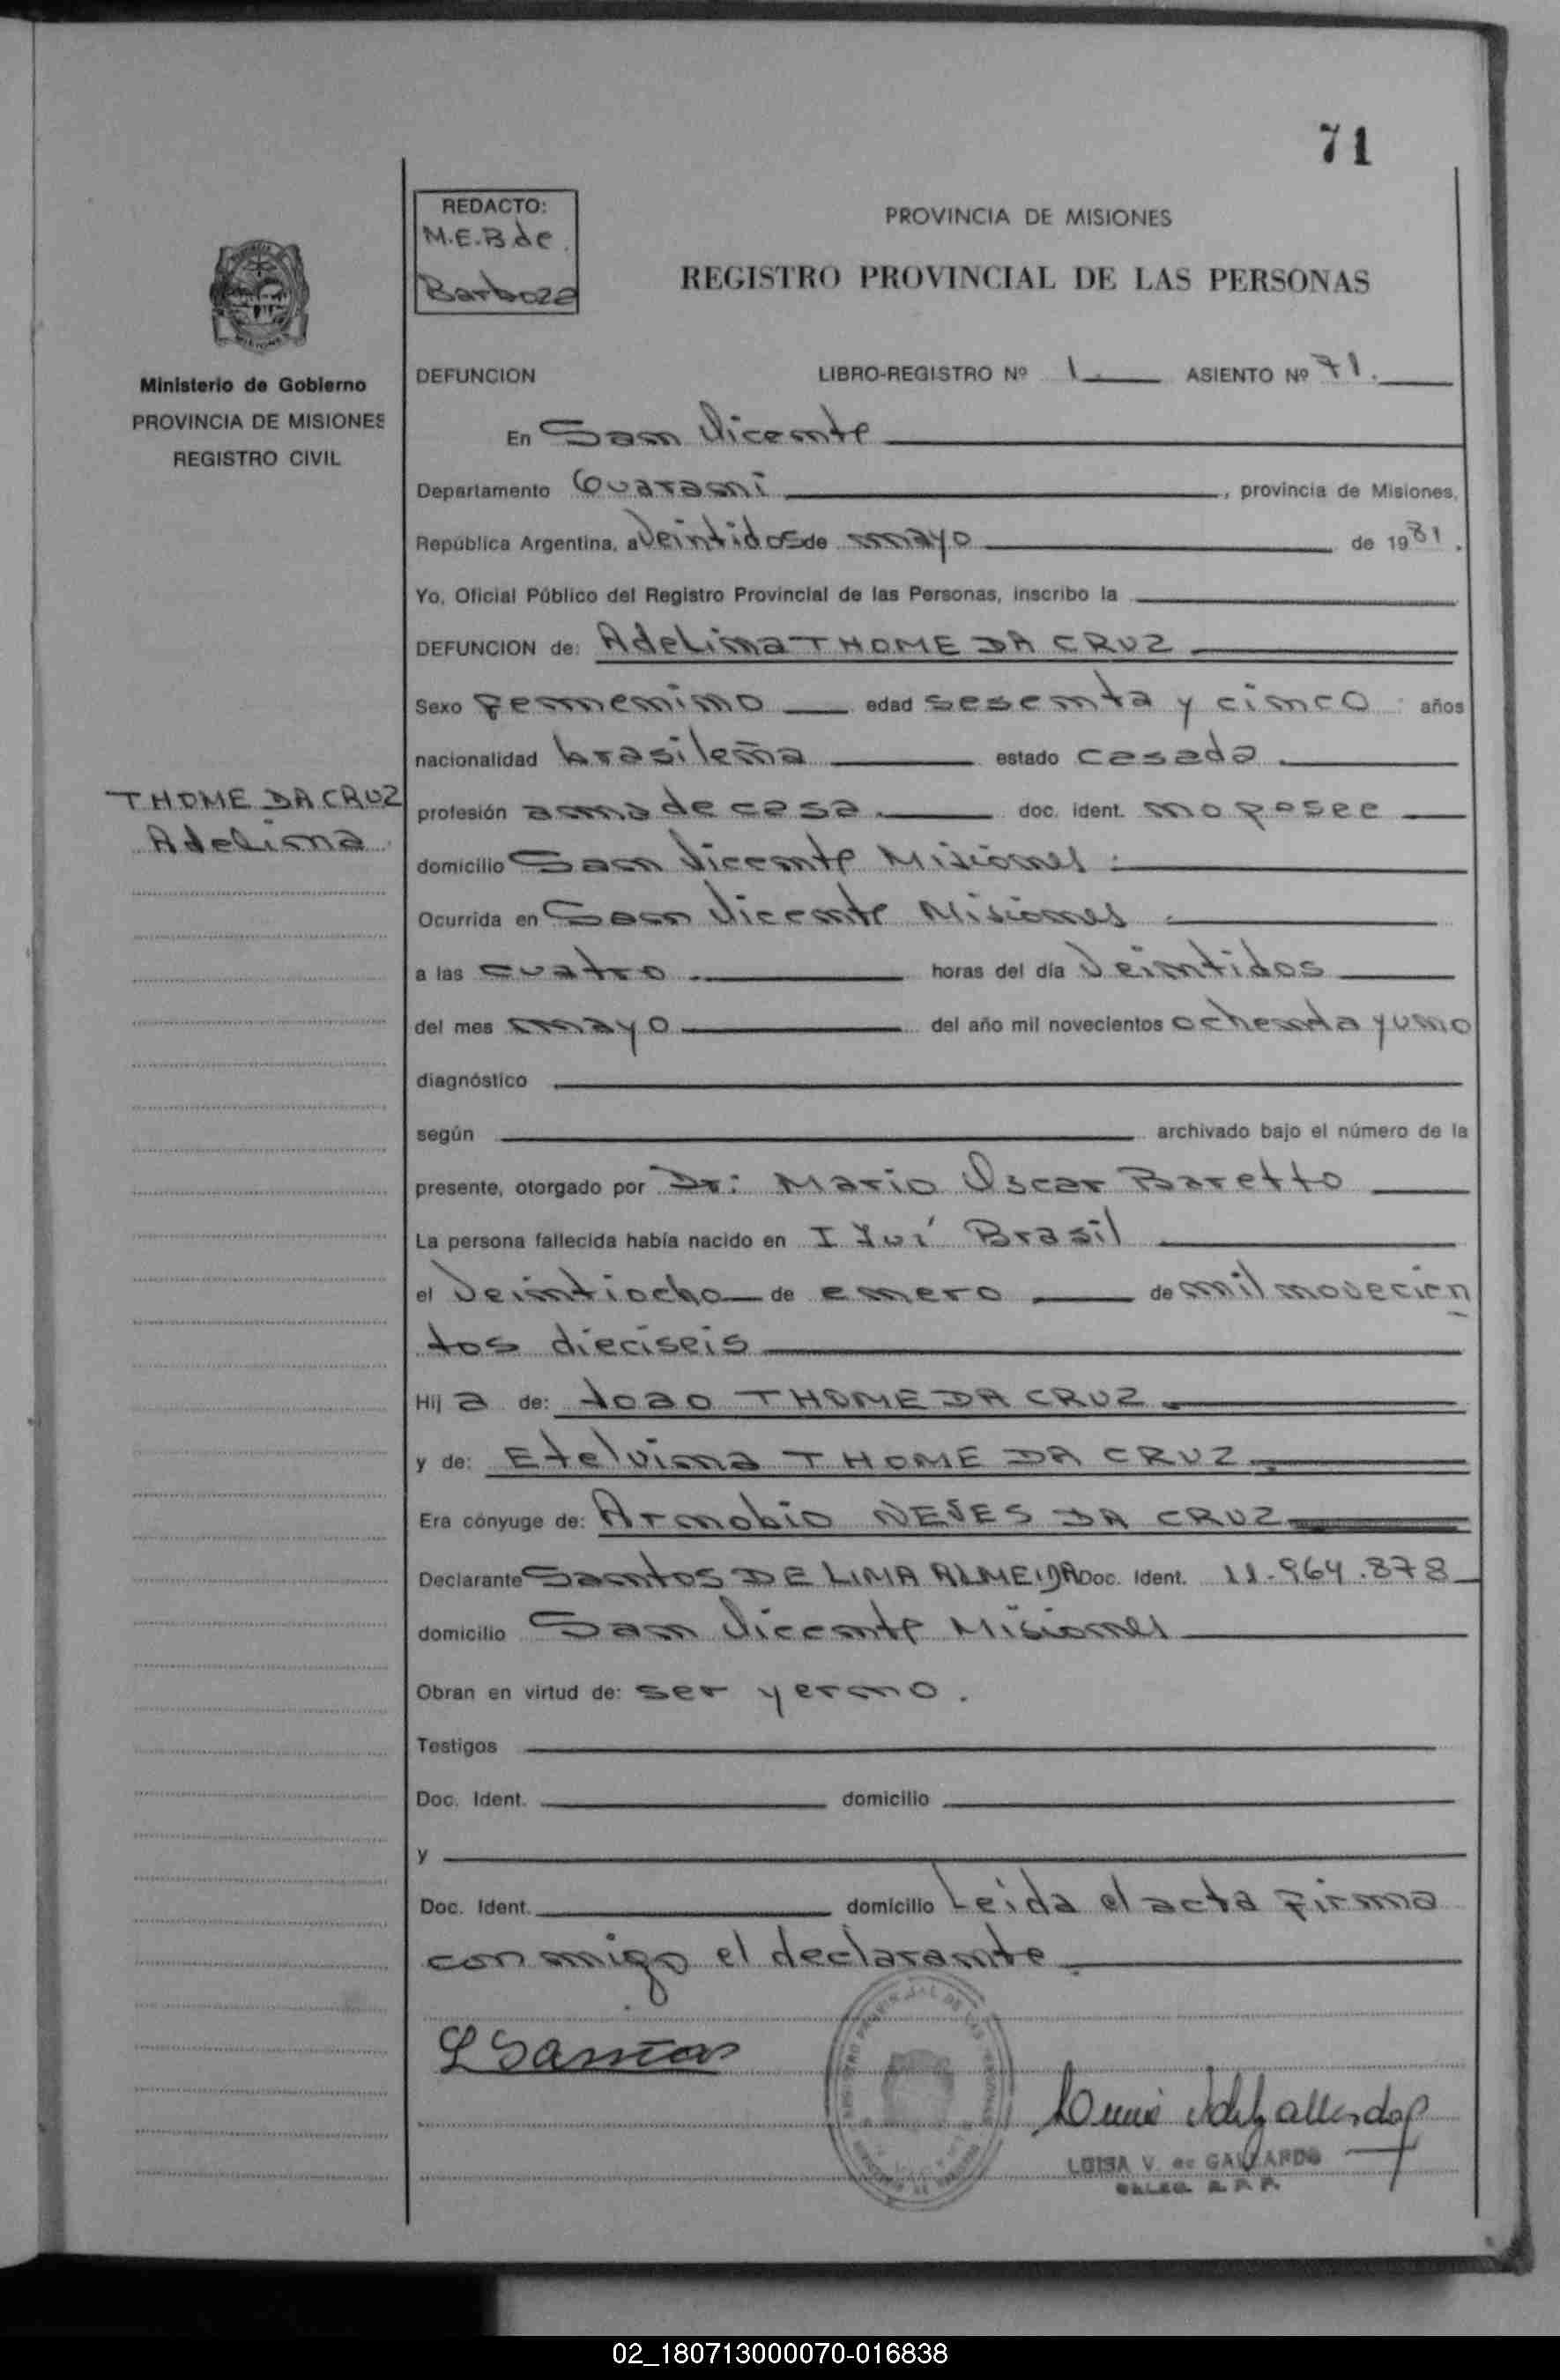 71
REDACTO:
M.E.B de
Barboza
PROVINCIA DE MISIONES
REGISTRO PROVINCIAL DE LAS PERSONAS
Ministerio de Gobierno
PROVINCIA DE MISIONES
REGISTRO CIVIL
DEFUNCION LIBRO-REGISTRO Nº 1. ASIENTO Nº 71.
En San Vicente
Departamento Guarani , provincia de Misiones,
República Argentina, a Veintidos de mayo de 1981.
Yo, Oficial Público del Registro Provincial de las Personas, inscribo la
DEFUNCION de: Adelina THOME DA CRUZ
Sexo femenino edad sesenta y cinco años
nacionalidad brasileña estado casada
THOME DA CRUZ
Adelina
profesión ama de casa. doc. ident. no posee
domicilio San Vicente Misiones
Ocurrida en San Vicente Misiones
a las cuatro horas del día Veintidos
del mes mayo del año mil novecientos ochenta y uno
diagnóstico
según archivado bajo el número de la
presente, otorgado por Dr: Mario Oscar Baretto
La persona fallecida había nacido en Ijuí Brasil
el Veintiocho de enero de mil novecien
tos dieciseis
Hij a de: Joao THOME DA CRUZ
y de: Etelvina THOME DA CRUZ
Era cónyuge de: Arnobio NEVES DA CRUZ
Declarante Santos DE LIMA ALMEIDA Doc. Ident. 11.964.878
domicilio San Vicente Misiones
Obran en virtud de: ser yerno.
Testigos
Doc. Ident. domicilio
y
Doc. Ident. domicilio Leida el acta firma
conmigo el declarante
L Santos
LUISA V. de GALLARDO
02_180713000070-016838